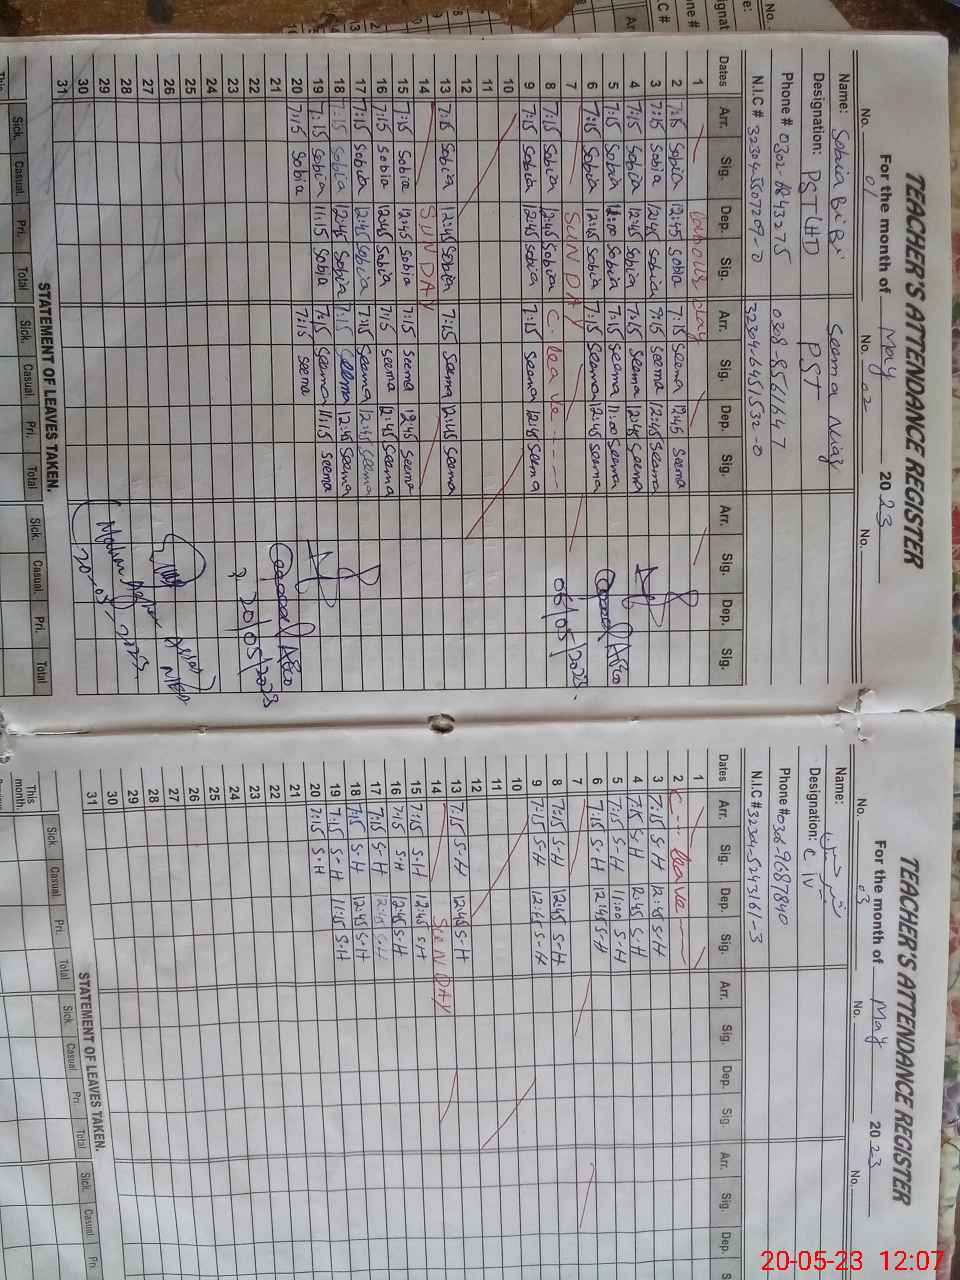 TEACHER'S ATTENDANCE REGISTER
For the month of May 2023
No. 01 No. 02 No.
Name: Sobia BiBi Seema Niaz
Designation: PST (HT) PST
Phone # 0308-8561647
N.I.C #
Dates Arr. Sig. Dep. Sig. Arr. Sig. Dep. Sig. Arr. Sig. Dep. Sig.
1 Labour day
2 7:15 Sobia 12:45 Sobia 7:15 Seema 12:45 Seema
3 7:15 Sobia 12:45 Sobia 7:15 Seema 12:45 Seema
4 7:15 Sobia 12:45 Sobia 7:15 Seema 12:45 Seema
5 7:15 Sobia 11:00 Sobia 7:15 Seema 11:00 Seema
6 7:15 Sobia 12:45 Sobia 7:15 Seema 12:45 Seema
7 SUNDAY
8 7:15 Sobia 12:45 Sobia C. leave
9 7:15 Sobia 12:45 Sobia 7:15 Seema 12:45 Seema
10
11
12
13 7:15 Sobia 12:45 Sobia 7:15 Seema 12:45 Seema
14 SUNDAY
15 7:15 Sobia 12:45 Sobia 7:15 Seema 12:45 Seema
16 7:15 Sobia 12:45 Sobia 7:15 Seema 12:45 Seema
17 7:15 Sobia 12:45 Sobia 7:15 Seema 12:45 Seema
18 7:15 Sobia 12:45 Sobia 7:15 Seema 12:45 Seema
19 7:15 Sobia 11:15 Sobia 7:15 Seema 11:15 Seema
20 7:15 Sobia 7:15 Seema
21
22
23
24
25
26
27
28
29
30
31
AEO
05/05/2023
AEO
20/05/2023
20-05-2023
STATEMENT OF LEAVES TAKEN.
Sick. Casual. Pri. Total Sick. Casual. Pri. Total Sick. Casual. Pri. Total
TEACHER'S ATTENDANCE REGISTER
For the month of May 2023
No. 03 No. No.
Name:
Designation: C iv
Phone # 0306-9687840
N.I.C #
Dates Arr. Sig. Dep. Sig. Arr. Sig. Dep. Sig. Arr. Sig. Dep.
1
2 C leave
3 7:15 S-H 12:45 S-H
4 7:15 S-H 12:45 S-H
5 7:15 S-H 11:00 S-H
6 7:15 S-H 12:45 S-H
7
8 7:15 S-H 12:45 S-H
9 7:15 S-H 12:45 S-H
10
11
12
13 7:15 S-H 12:45 S-H
14 SUNDAY
15 7:15 S-H 12:45 S-H
16 7:15 S-H 12:45 S-H
17 7:15 S-H 12:45 S-H
18 7:15 S-H 12:45 S-H
19 7:15 S-H 11:15 S-H
20 7:15 S-H
21
22
23
24
25
26
27
28
29
30
31
STATEMENT OF LEAVES TAKEN.
Sick. Casual. Pri. Total Sick. Casual. Pri. Total Sick. Casual. Pri.
This month.
20-05-23 12:07